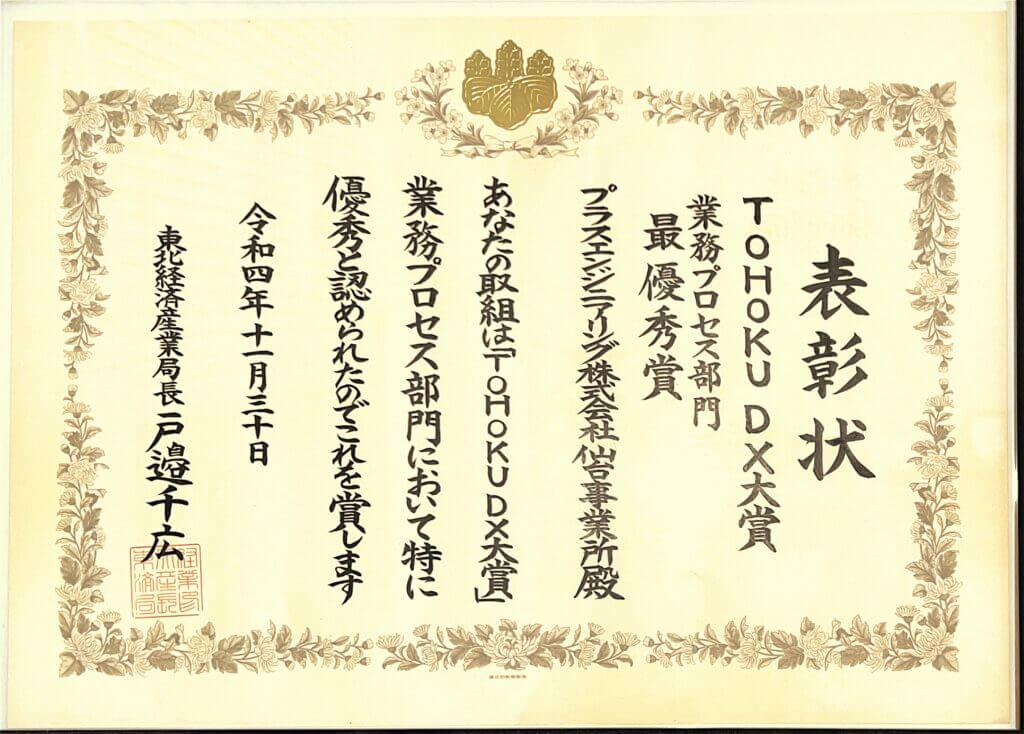 表彰状
TOHOKU DX大賞
業務プロセス部門
最優秀賞
プラスエンジニアリング株式会社仙台事業所殿
あなたの取組は「TOHOKU DX大賞」
業務プロセス部門において特に
優秀と認められたのでこれを賞します
令和四年十一月三十日
東北経済産業局長 戸邉千広